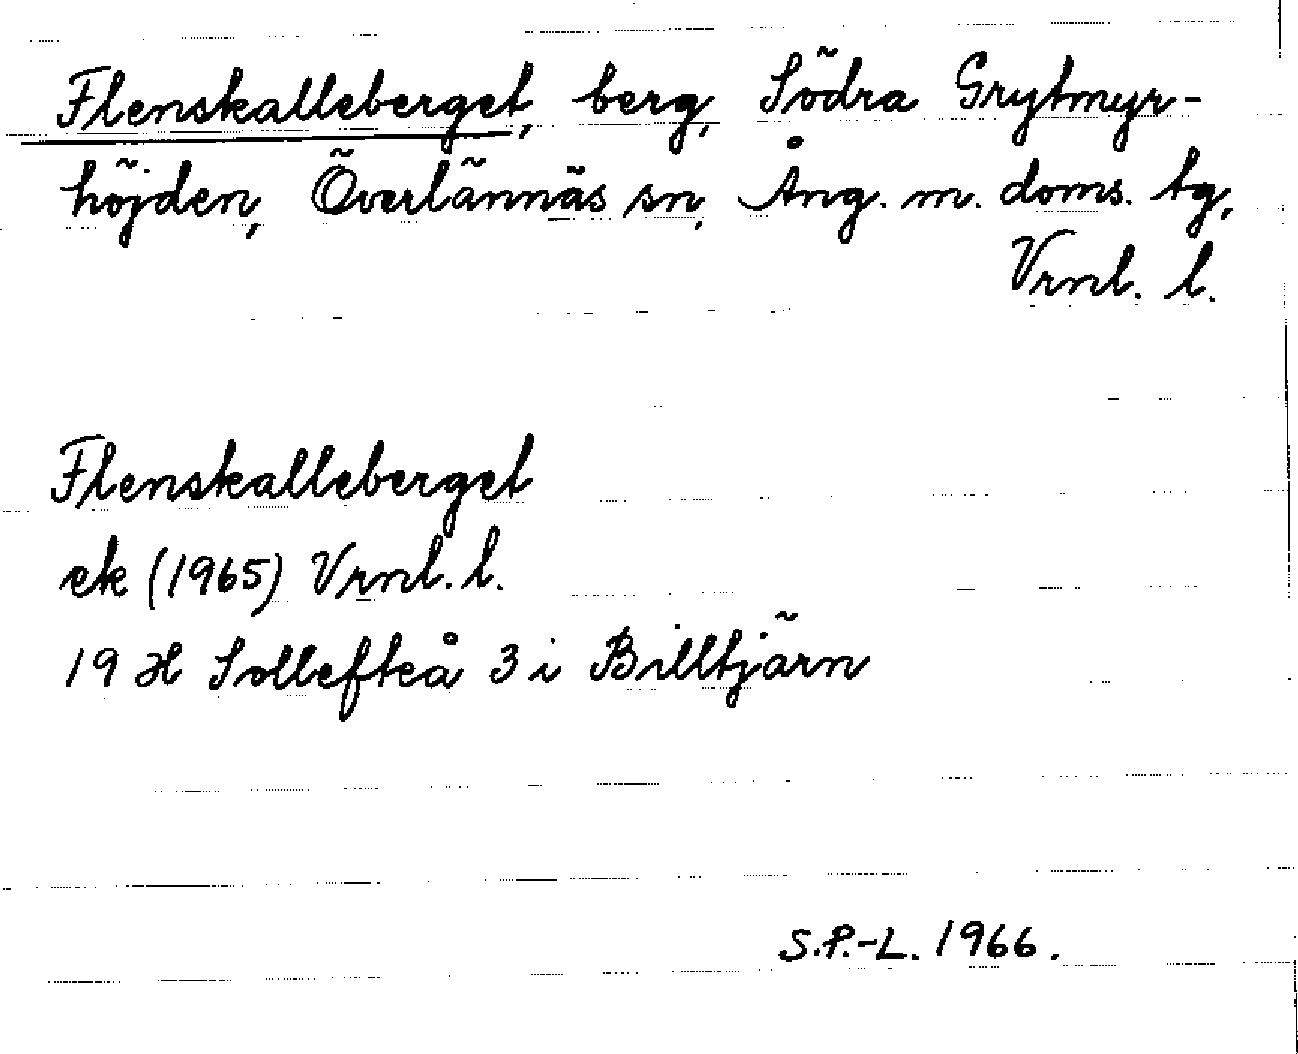 Flenskalleberget, berg, Södra Grytmyr-
höjden, Överlännäs sn, Ång. m. doms. tg,
Vrnl. l.
Flenskalleberget
ek (1965) Vrnl. l.
19 H Sollefteå 3 i Billtjärn
S.P.-L. 1966.